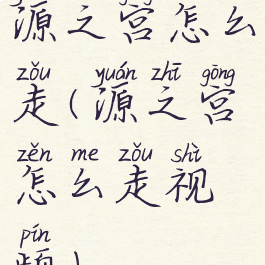 源之宫怎么
zǒu yuán zhī gōng
走(源之宫
zěn me zǒu shì
怎么走视
pín
频)